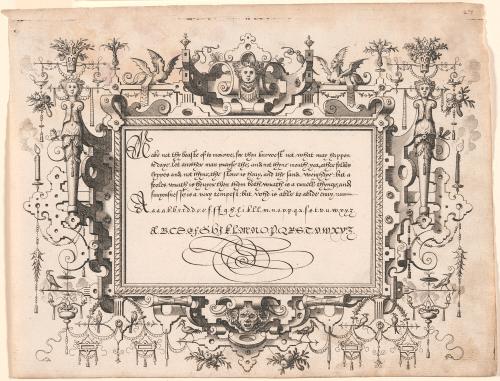 Make not thy boaste of to morowe, for thou knowest not what may happen
to daye. Let another man prayse thee, and not thine mouth, yea, other folkes
lyppes, and not thyne, the stone is heavy, and the sande weightye: but a
fooles wrath is heavyer then them both, wrath is a cruell thynge, and
furiousnesse is a very tempest: but who is able to abide envy.
A a a a b b c d d e e f f g h i k l l m n o p p q r s s t v u w x y z
A B C D E F G H I K L M N O P Q R S T V W X Y Z